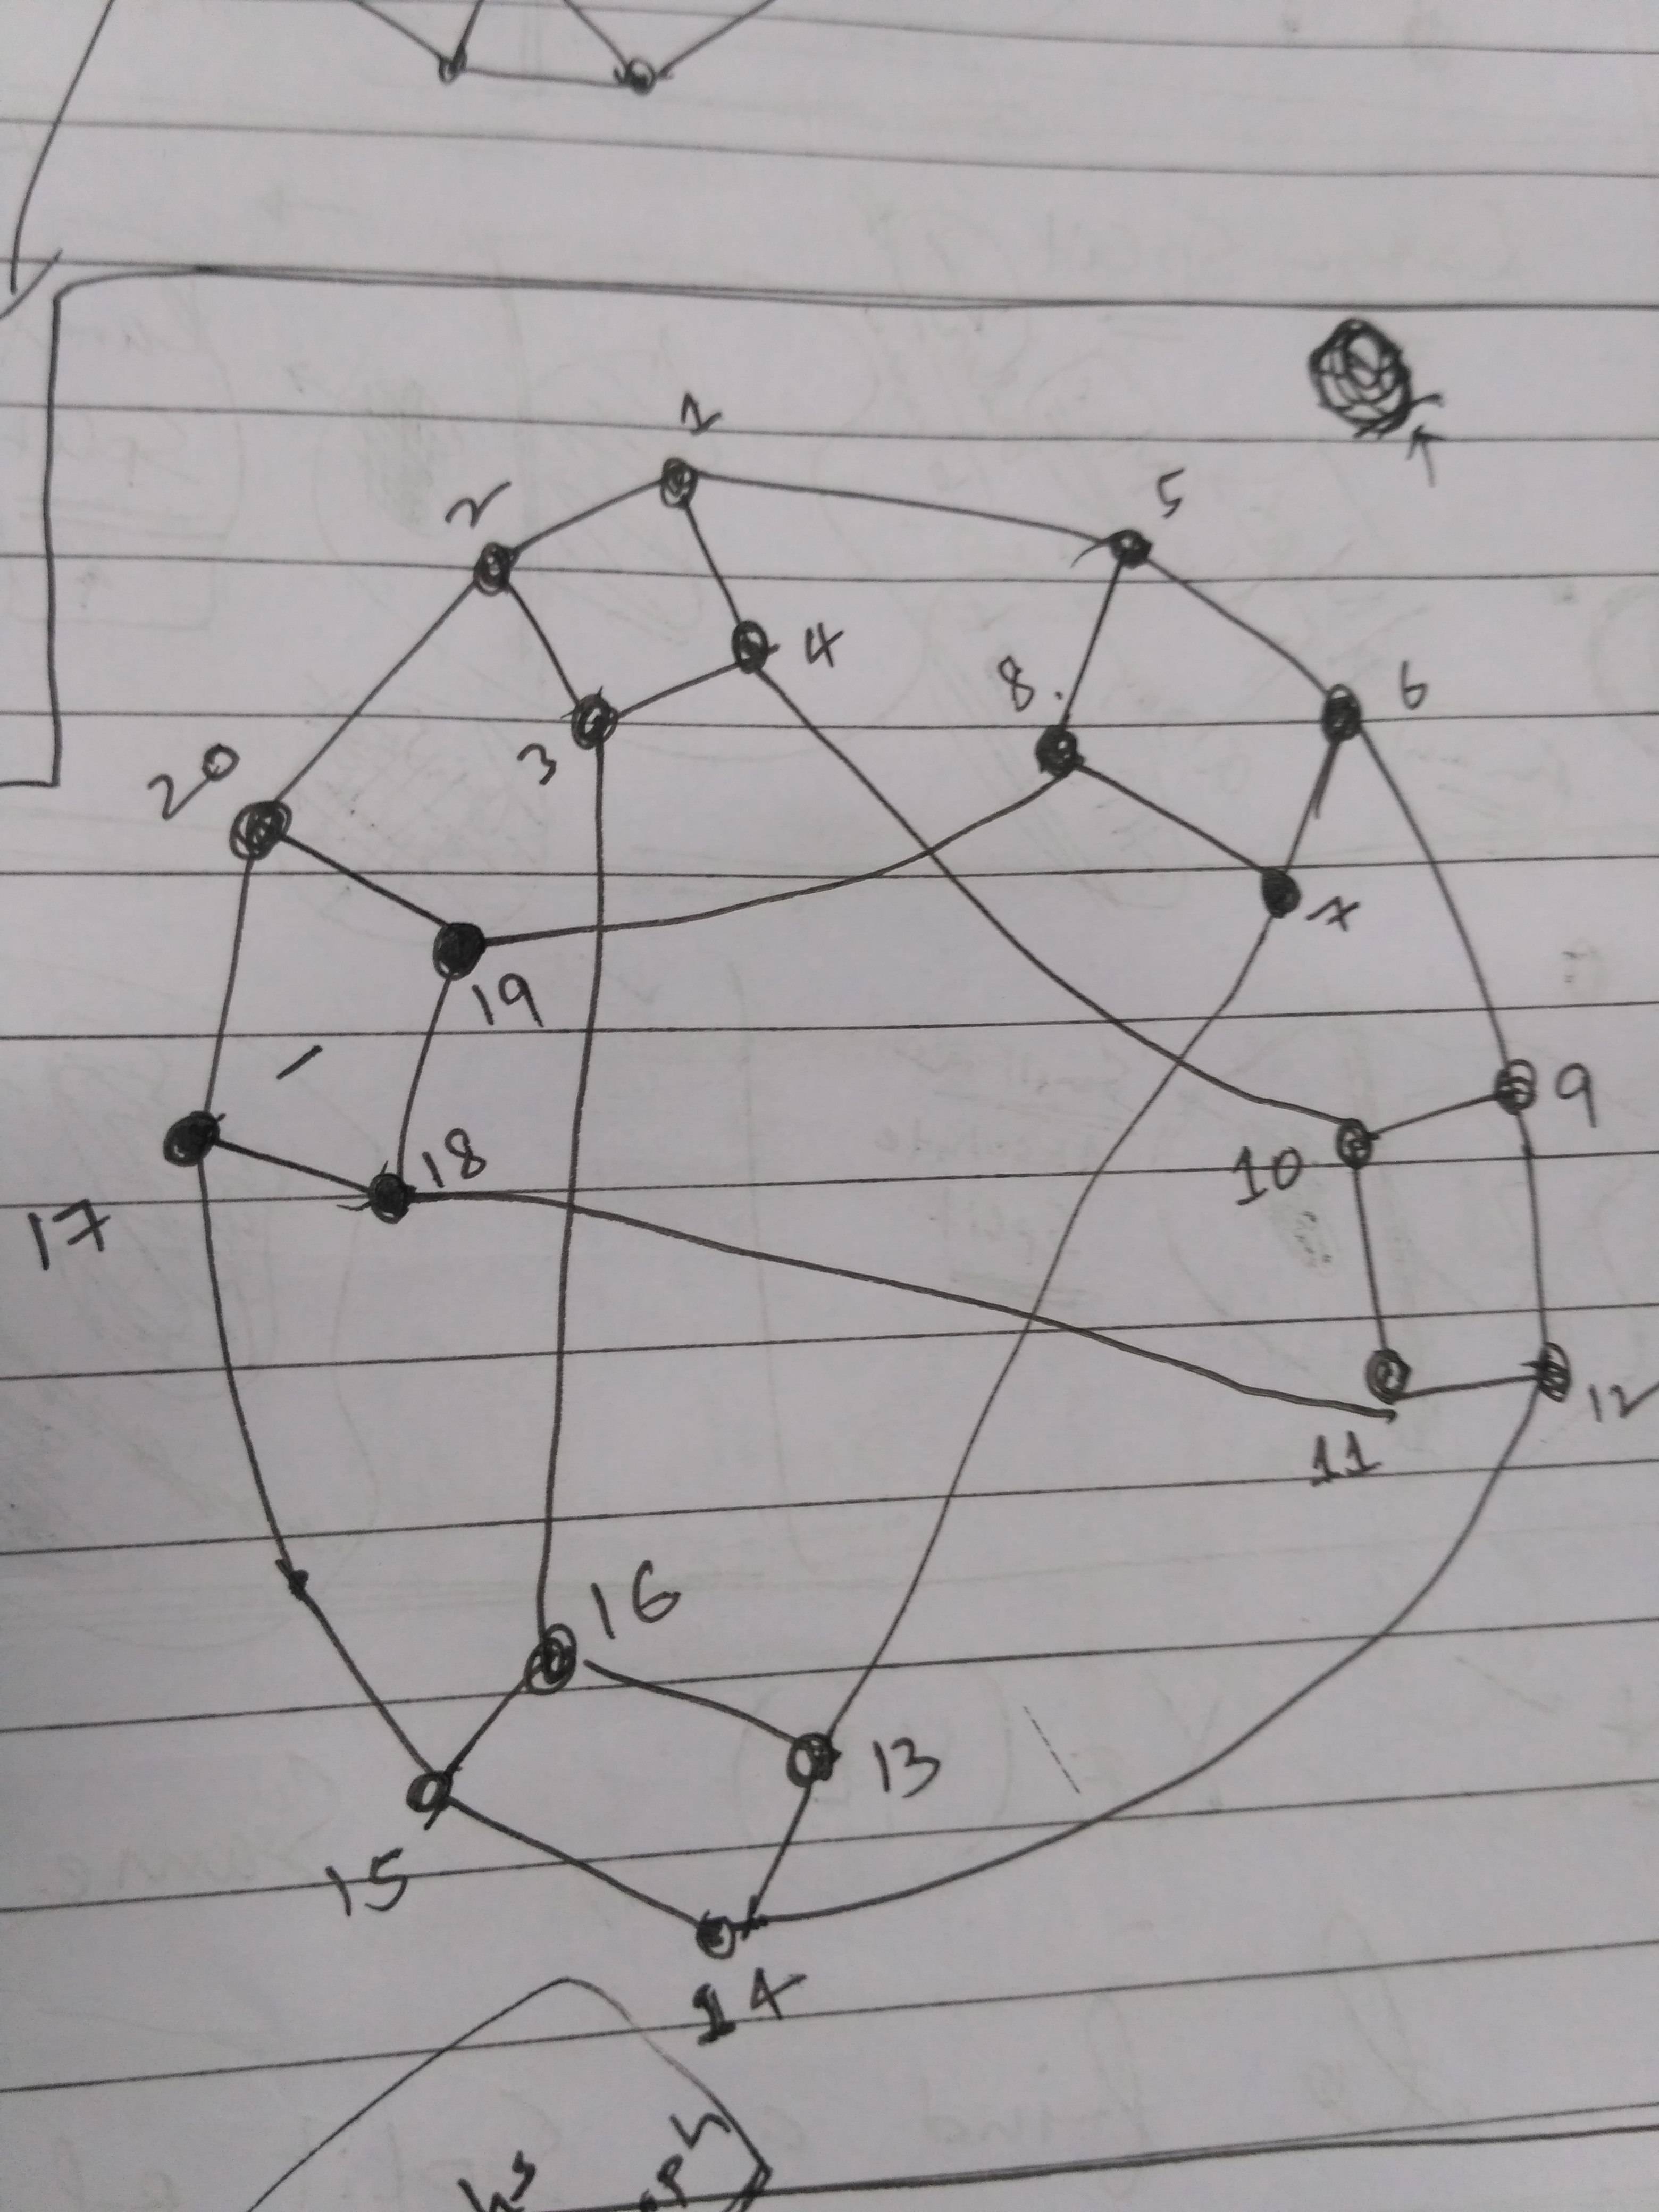 1
2
5
4
6
8.
3
20
7
19
9
18
10
17
12
11
16
13
15
14